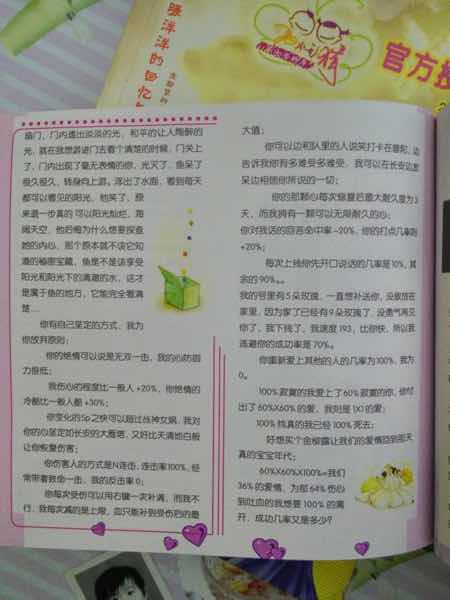 暖洋洋的回忆
官方授
扇门，门内透出淡淡的光，和平的让人陶醉的
光，就在我想游进门去看个清楚的时候，门关上
了，门内出现了毫无表情的你，光灭了，鱼呆了
很久很久，转身向上游。浮出了水面，看到每天
都可以看见的阳光，他笑了，原
来退一步真的可以阳光灿烂，海
阔天空，他后悔为什么想要探查
她的内心，那个原本就不该它知
道的秘密宝藏，鱼是不是该享受
阳光和阳光下的清澈的水，这才
是属于鱼的地方，它能完全看清
楚…
你有自己坚定的方式，我为
你放弃原则；
你的绝情可以说是无双一击，我的心防御
力很低；
我伤心的程度比一般人+20%，你绝情的
冷酷比一般人酷+30%；
你变化的Sp之快可以超过战神女娲，我对
你的心坚定如长安的大雁塔，又好比天清地白般
让你恢复伤害；
你伤害人的方式是N连击，连击率100%，经
常带着致命一击，我的反击率0；
你每次受创可以用右键一次补满，而我不
行，我每次减的是上限，血只能补到受伤后的最
大值；
你可以边和队里的人说笑打卡在普陀，边
告诉我你有多难受多难受，我可以在长安边发
呆边相信你所说的一切；
你的那颗心每次修复后最大耐久度为3
天，而我拥有一颗可以无限耐久的心；
你对我话的回答命中率-20%，你的打点几率则
+20%；
每次上线你先开口说话的几率是10%，其
余的90%。。
我的号里有5朵玫瑰，一直想补送你，没敢放在
家里，因为家了已经有9朵玫瑰了，没勇气再见
你了，我下线了，我速度193，比你快，所以我
逃避你的成功率是70%。
你重新爱上其他的人的几率为100%，我为
0。
100%寂寞的我爱上了60%寂寞的你，你付
出了60%X60%的爱，我则是1X1的爱；
100%纯真的我已经100%死去；
好想买个金柳露让我们的爱情回到那天
真的宝宝年代；
60%X60%X100%=我们
36%的爱情，为那64%伤心
到吐血的我想要100%的离
开，成功几率又是多少？